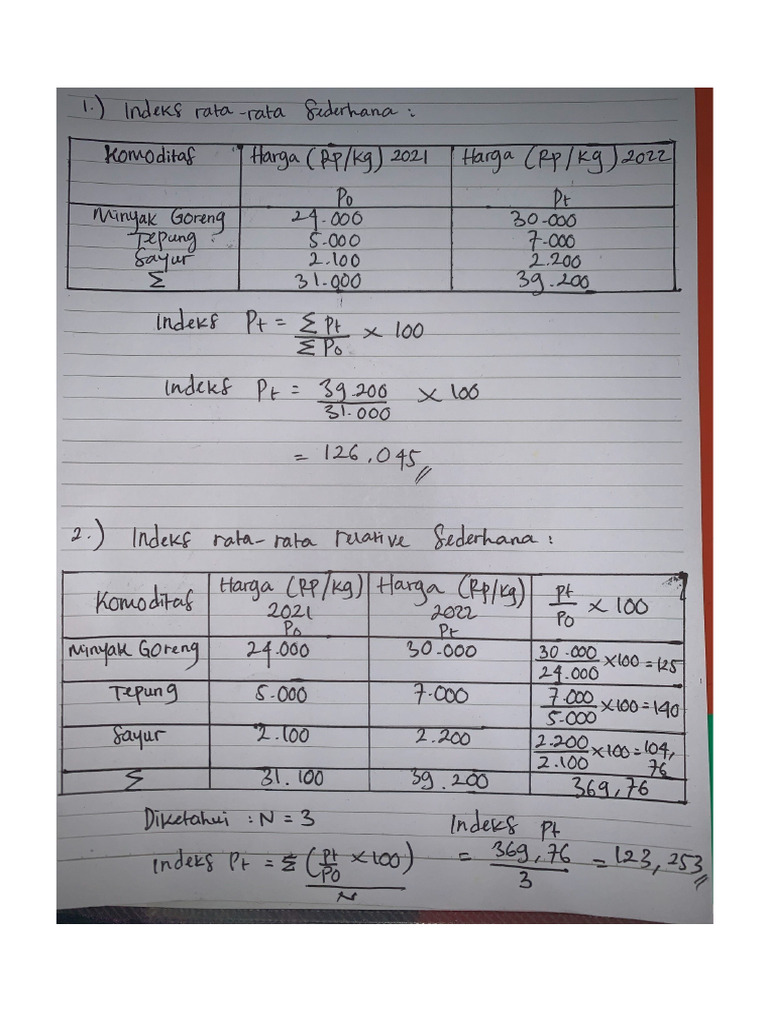 1.) Indeks rata-rata Sederhana :
Komoditas Harga (Rp/kg) 2021 Harga (Rp/kg) 2022
Po Pt
Minyak Goreng 24.000 30.000
Tepung 5.000 7.000
Sayur 2.100 2.200
Σ 31.000 39.200
Indeks Pt = Σ Pt / Σ Po × 100
Indeks Pt = 39.200 / 31.000 × 100
= 126,045
2.) Indeks rata-rata relative Sederhana :
Komoditas Harga (Rp/kg) 2021 Po Harga (Rp/kg) 2022 Pt Pt / Po × 100
Minyak Goreng 24.000 30.000 30.000 / 24.000 ×100 = 125
Tepung 5.000 7.000 7.000 / 5.000 ×100 = 140
Sayur 2.100 2.200 2.200 / 2.100 ×100 = 104,76
Σ 31.100 39.200 369,76
Diketahui : N = 3
Indeks Pt = Σ (Pt / Po × 100) / N
Indeks Pt
= 369,76 / 3 = 123,253